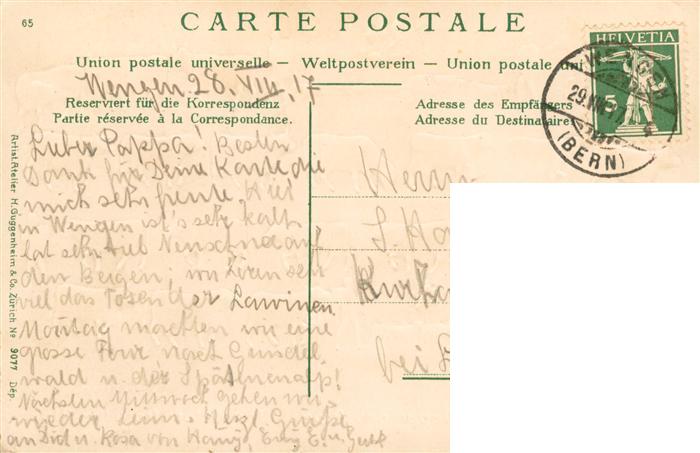 65
CARTE POSTALE
Union postale universelle – Weltpostverein – Union postale uni
Wengen 28. VIII. 17
Reserviert für die Korrespondenz
Partie réservée à la Correspondance.
Adresse des Empfängers
Adresse du Destinataire
HELVETIA
5
WENGEN
29.VIII.17
(BERN)
Lieber Pappa! Besten
Dank für Deine Karte die
mich sehr freute. Hier
in Wengen ist's sehr kalt
hat sehr viel Neuschnee auf
den Bergen, wir hören sehr
viel das Tosen der Lawinen.
Montag machten wir eine
grosse Tour nach Grindel-
wald u. der
Nächsten Mittwoch gehen wir
wieder heim. Herzl. Grüsse
an Dich u. Rosa von
Herrn
S.
bei
Artist. Atelier H. Guggenheim & Co. Zürich No 9077 Dép.